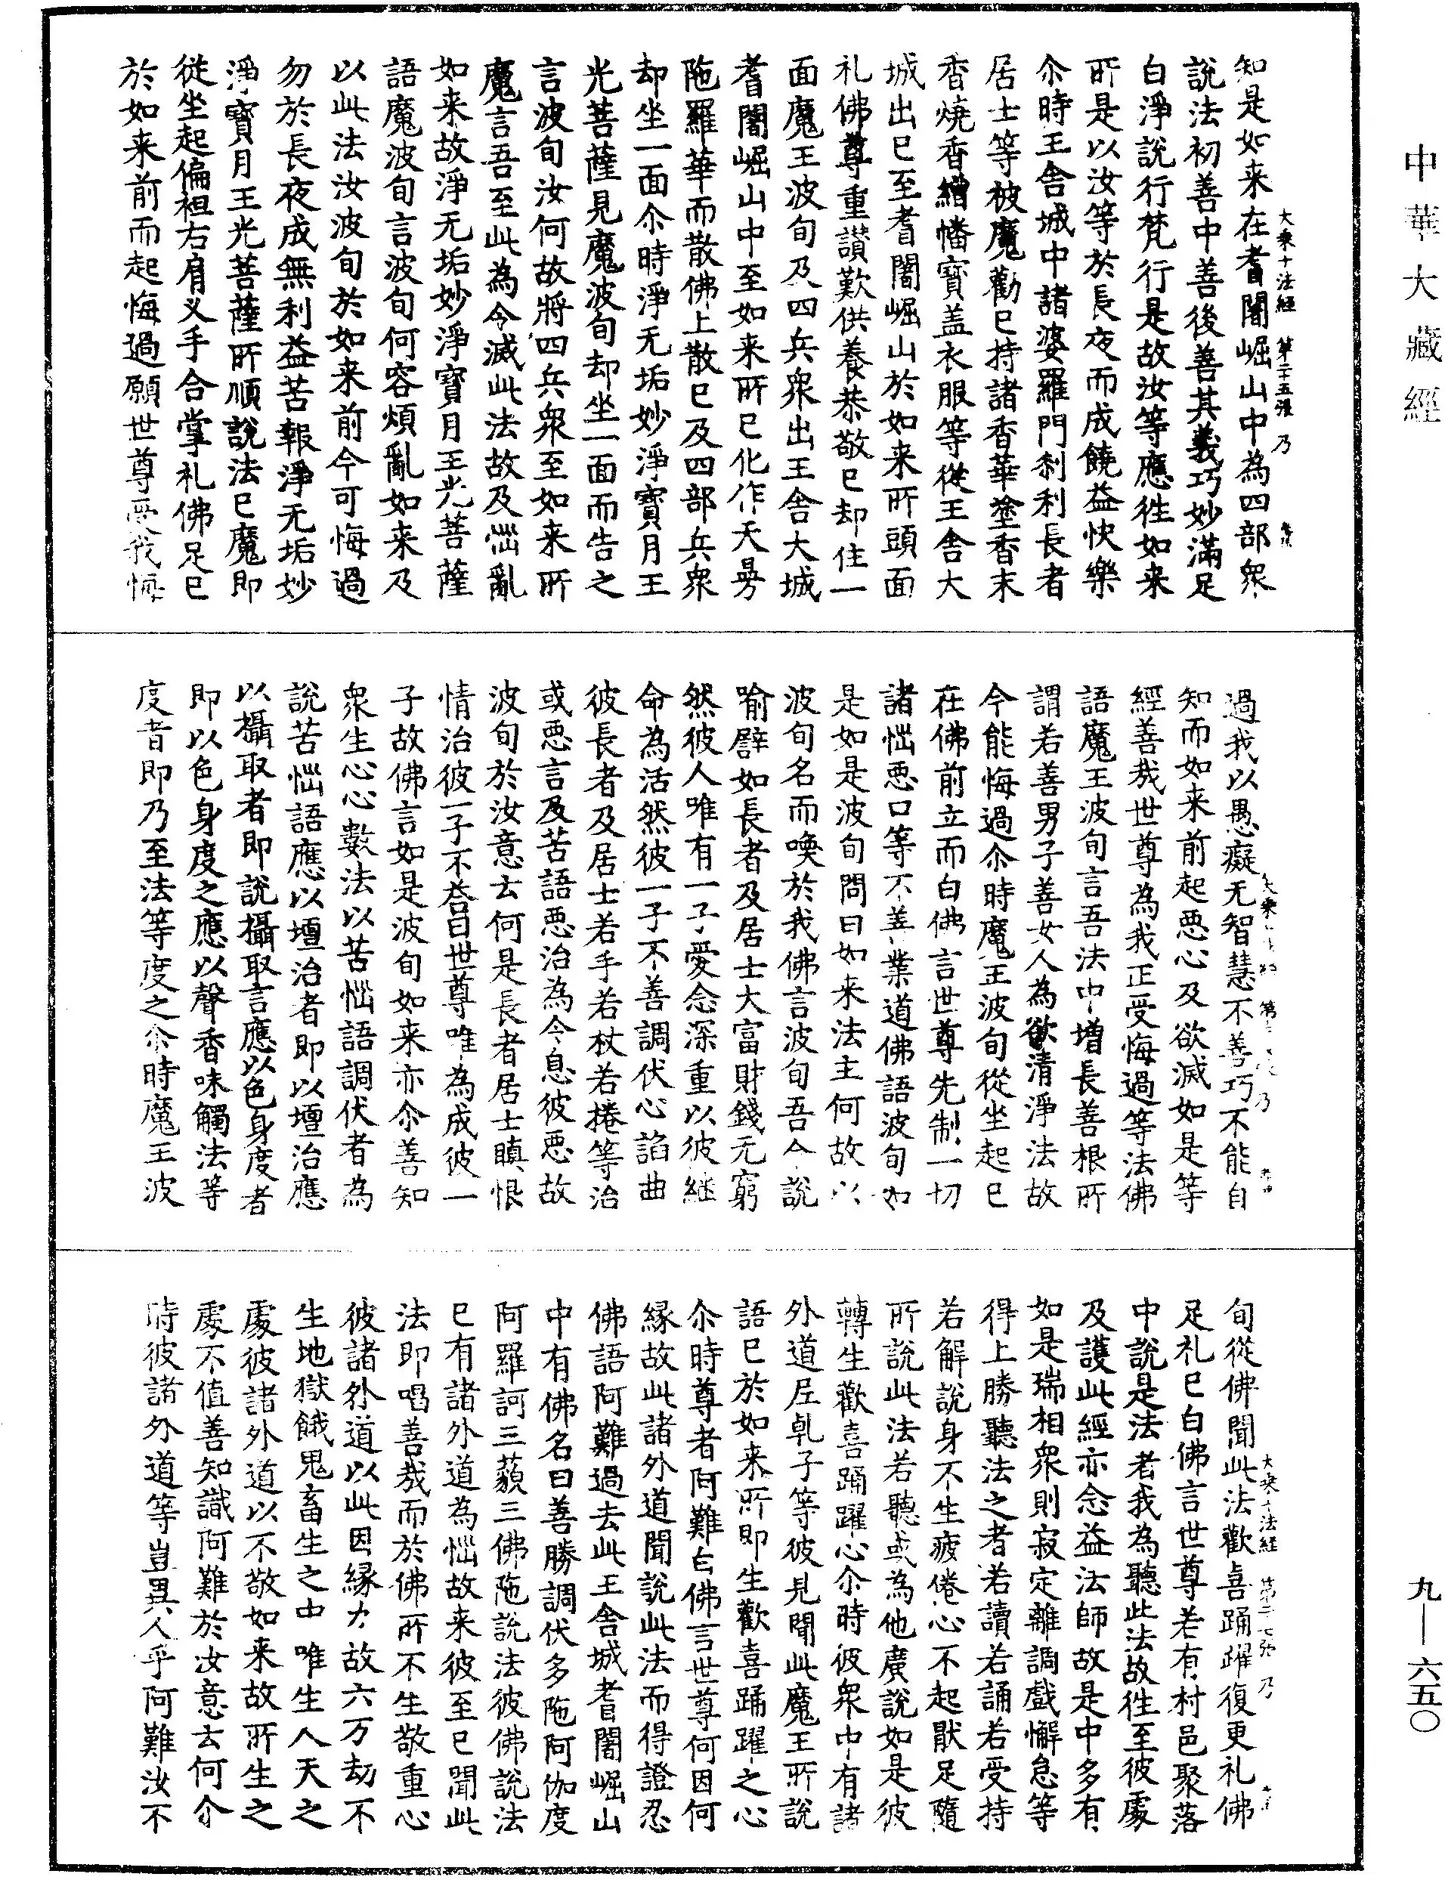 中華大藏經
大乘十法經 第二十五張 乃
知是如来在耆闍崛山中為四部衆
說法初善中善後善其義巧妙滿足
白淨說行梵行是故汝等應往如来
所是以汝等於長夜而成饒益快樂
尒時王舍城中諸婆羅門刹利長者
居士等被魔勸已持諸香華塗香末
香燒香繒幡寶盖衣服等從王舍大
城出已至耆闍崛山於如来所頭面
礼佛尊重讃歎供養恭敬已却住一
面魔王波旬及四兵衆出王舍大城
耆闍崛山中至如来所已化作天曼
陁羅華而散佛上散已及四部兵衆
却坐一面尒時淨无垢妙淨寶月王
光菩薩見魔波旬却坐一面而告之
言波旬汝何故將四兵衆至如来所
魔言吾至此為令滅此法故及惱亂
如来故淨无垢妙淨寶月王光菩薩
語魔波旬言波旬何容煩亂如来及
以此法汝波旬於如来前今可悔過
勿於長夜成無利益苦報淨无垢妙
淨寶月王光菩薩所順說法已魔即
從坐起偏袒右肩义手合掌礼佛足已
於如来前而起悔過願世尊受我悔
過我以愚癡无智慧不善巧不能自
知而如来前起惡心及欲滅如是等
經善哉世尊為我正受悔過等法佛
語魔王波旬言吾法中增長善根所
謂若善男子善女人為欲清淨法故
今能悔過尒時魔王波旬從坐起已
在佛前立而白佛言世尊先制一切
諸惱惡口等不善業道佛語波旬如
是如是波旬問曰如来法主何故以
波旬名而喚於我佛言波旬吾今說
喻譬如長者及居士大富財錢无窮
然彼人唯有一子愛念深重以彼繼
命為活然彼一子不善調伏心諂曲
彼長者及居士若手若杖若捲等治
或惡言及苦語惡治為令息彼惡故
波旬於汝意云何是長者居士瞋恨
情治彼一子不荅曰世尊唯為成彼一
子故佛言如是波旬如来亦尒善知
衆生心心數法以苦惱語調伏者為
說苦惱語應以壇治者即以壇治應
以攝取者即說攝取言應以色身度者
即以色身度之應以聲香味觸法等
度者即乃至法等度之尒時魔王波
大乘十法經 第二十七張 乃
旬從佛聞此法歡喜踊躍復更礼佛
足礼已白佛言世尊若有村邑聚落
中說是法者我為聽此法故往至彼處
及護此經亦念益法師故是中多有
如是瑞相衆則寂定離調戲懈怠等
得上勝聽法之者若讀若誦若受持
若解說身不生疲倦心不起猒足隨
所說此法若聽或為他廣說如是彼
轉生歡喜踊躍心尒時彼衆中有諸
外道尼乹子等彼見聞此魔王所說
語已於如来所即生歡喜踊躍之心
尒時尊者阿難白佛言世尊何因何
緣故此諸外道聞說此法而得證忍
佛語阿難過去此王舍城耆闍崛山
中有佛名曰善勝調伏多陁阿伽度
阿羅訶三藐三佛陁說法彼佛說法
已有諸外道為惱故来彼至已聞此
法即唱善哉而於佛所不生敬重心
彼諸外道以此因緣力故六万劫不
生地獄餓鬼畜生之中唯生人天之
處彼諸外道以不敬如来故所生之
處不值善知識阿難於汝意云何尒
時彼諸外道等豈異人乎阿難汝不
九—六五〇